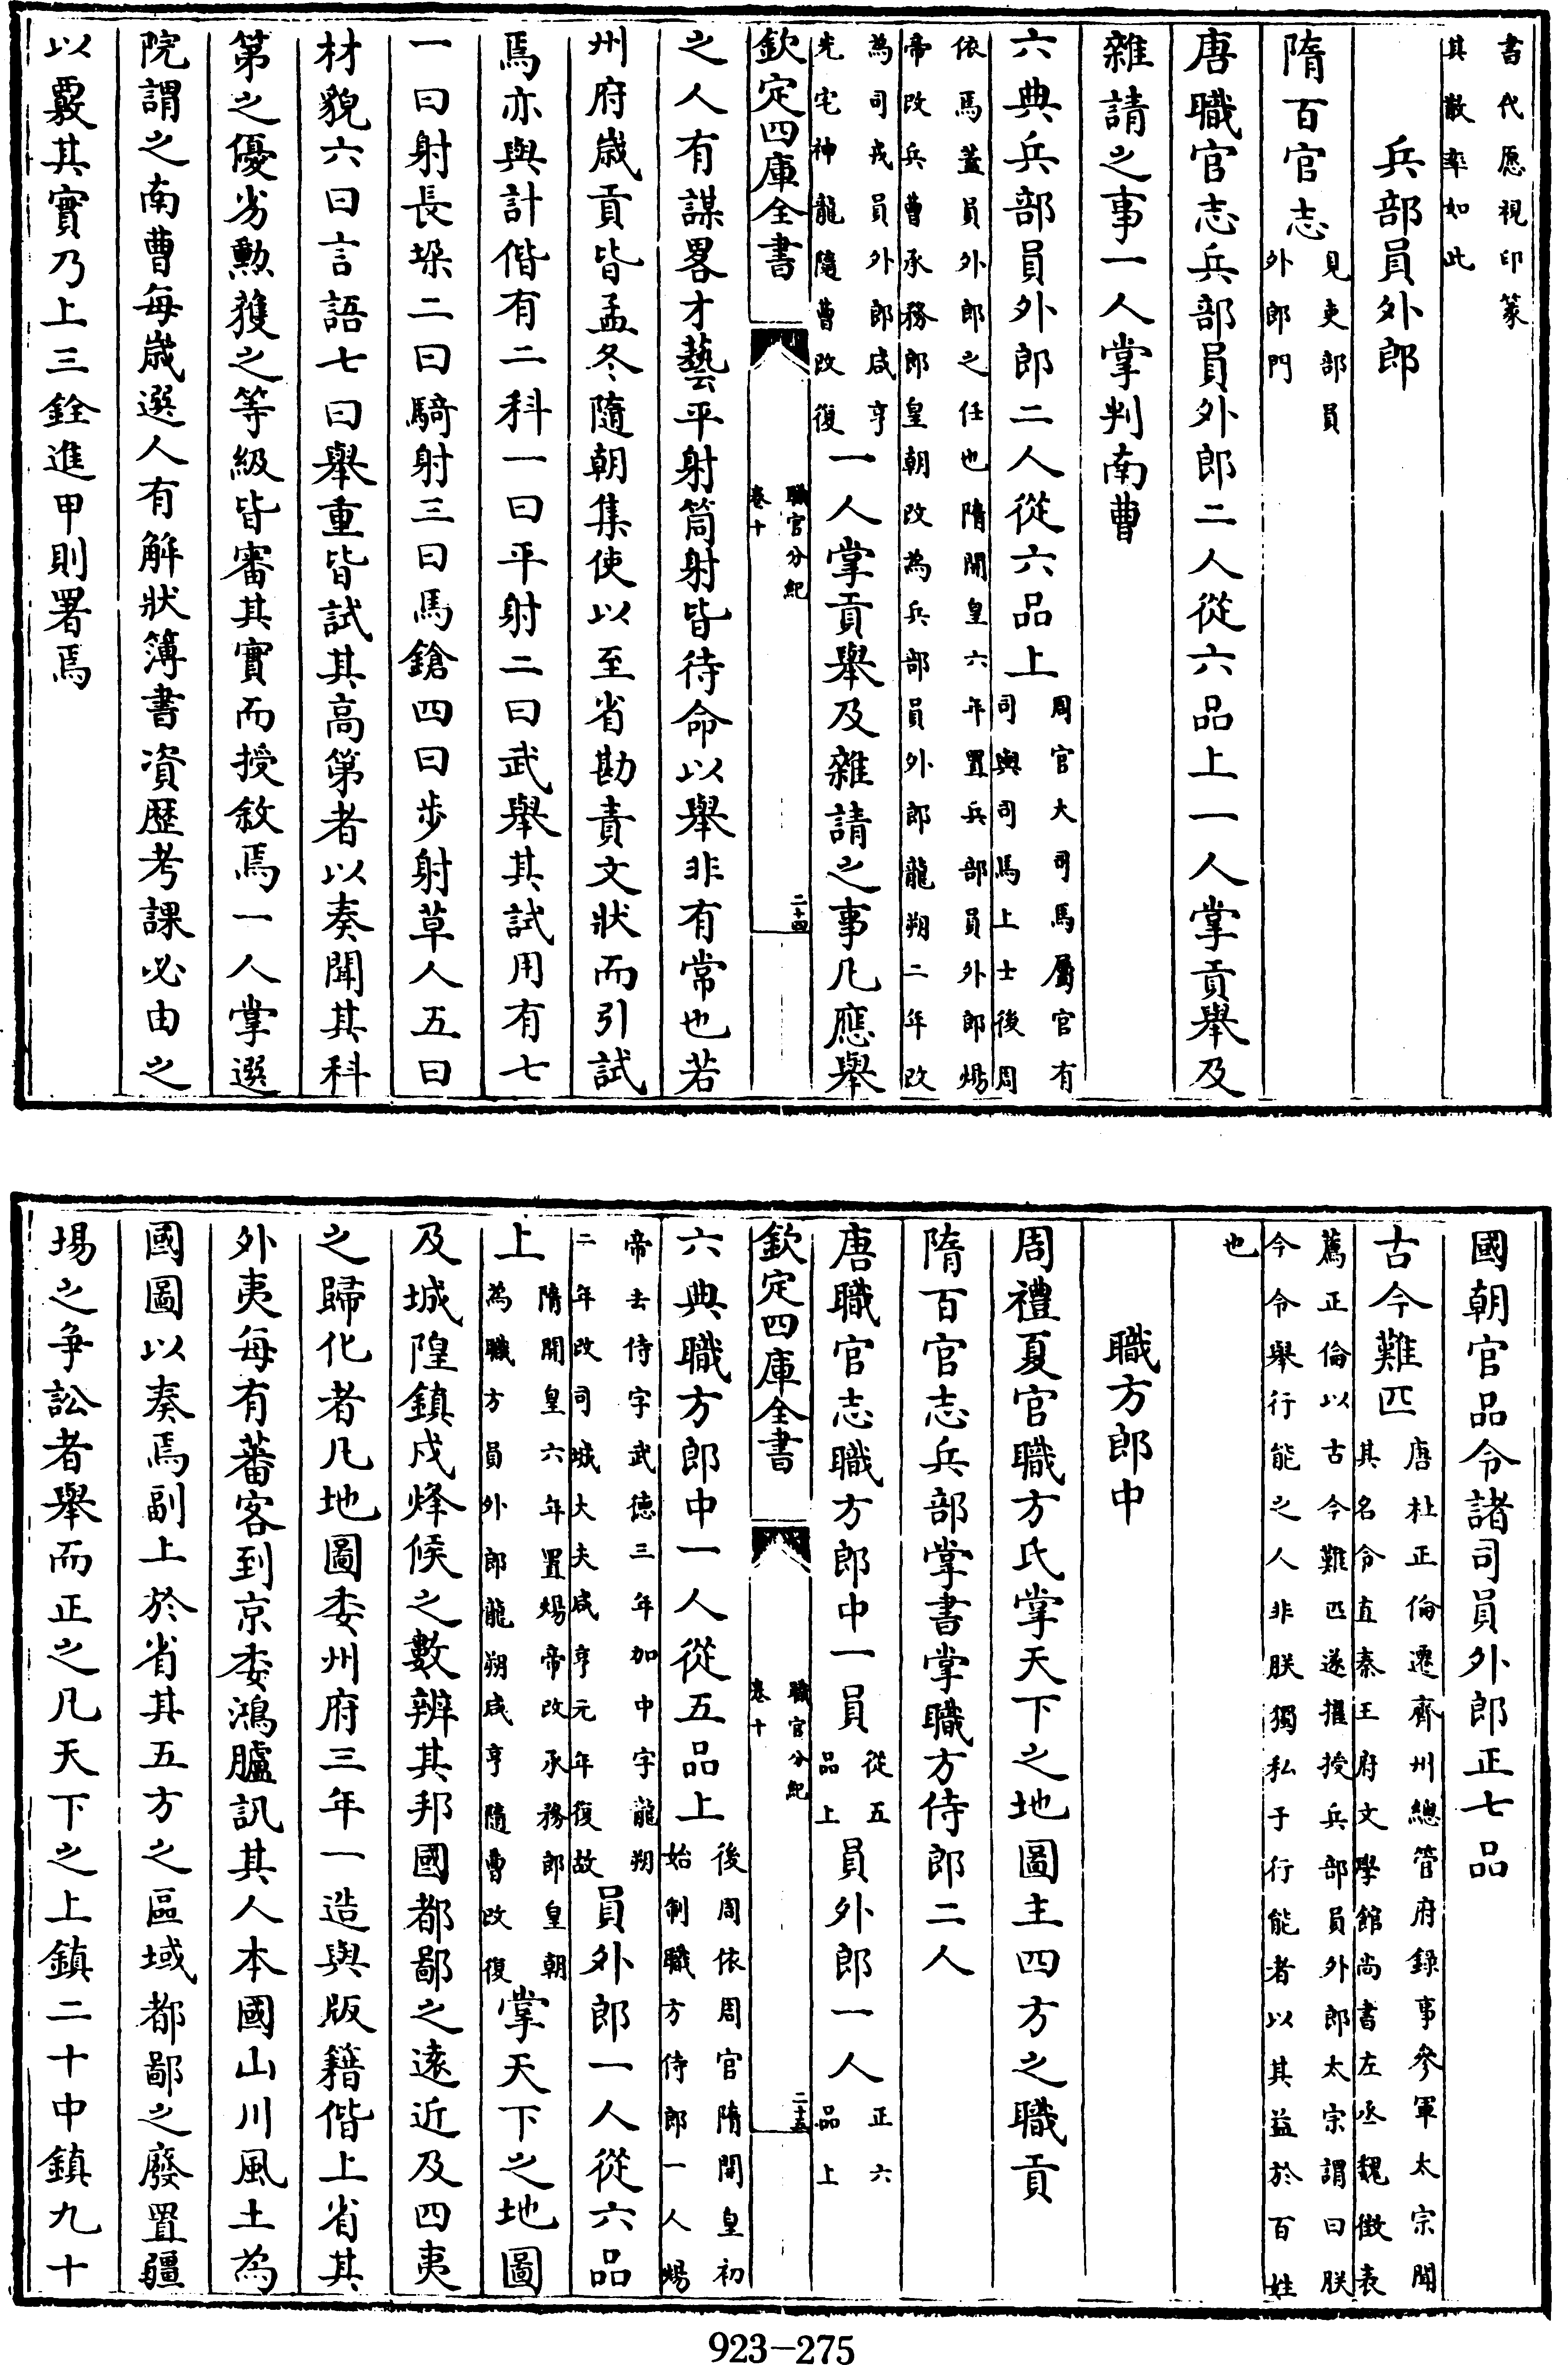 書代愿視印篆
其散率如此
兵部員外郎
隋百官志見吏部員外郎門
唐職官志兵部員外郎二人從六品上一人掌貢舉及
雜請之事一人掌判南曹
六典兵部員外郎二人從六品上周官大司馬屬官有司輿司馬上士後周
依焉蓋員外郎之任也隋開皇六年置兵部員外郎煬帝改兵曹承務郎皇朝改為兵部員外郎龍朔二年改
為司戎員外郎咸亨光宅神龍隨曹改復一人掌貢舉及雜請之事凡應舉
欽定四庫全書 職官分紀 卷十 二十四
之人有謀畧才藝平射筒射皆待命以舉非有常也若
州府歲貢皆孟冬隨朝集使以至省勘責文狀而引試
焉亦與計偕有二科一曰平射二曰武舉其試用有七
一曰射長垛二曰騎射三曰馬鎗四曰步射草人五曰
材貌六曰言語七曰舉重皆試其高第者以奏聞其科
第之優劣勲獲之等級皆審其實而授敘焉一人掌選
院謂之南曹每歲選人有解狀簿書資歷考課必由之
以覈其實乃上三銓進甲則署焉
國朝官品令諸司員外郎正七品
古今難匹唐杜正倫遷齊州總管府錄事參軍太宗聞其名令直秦王府文學館尚書左丞魏徵表
薦正倫以古今難匹遂擢授兵部員外郎太宗謂曰朕今令舉行能之人非朕獨私于行能者以其益於百姓
也
職方郎中
周禮夏官職方氏掌天下之地圖主四方之職貢
隋百官志兵部掌書掌職方侍郎二人
唐職官志職方郎中一員從五品上員外郎一人正六品上
欽定四庫全書 職官分紀 卷十 二十五
六典職方郎中一人從五品上後周依周官隋開皇初始制職方侍郎一人煬
帝去侍字武德三年加中字龍朔二年改司城大夫咸亨元年復故員外郎一人從六品
上隋開皇六年置煬帝改承務郎皇朝為職方員外郎龍朔咸亨隨曹改復掌天下之地圖
及城隍鎮戍烽候之數辨其邦國都鄙之遠近及四夷
之歸化者凡地圖委州府三年一造與版籍偕上省其
外夷每有蕃客到京委鴻臚訊其人本國山川風土為
國圖以奏焉副上於省其五方之區域都鄙之廢置疆
場之爭訟者舉而正之凡天下之上鎮二十中鎮九十
923-275